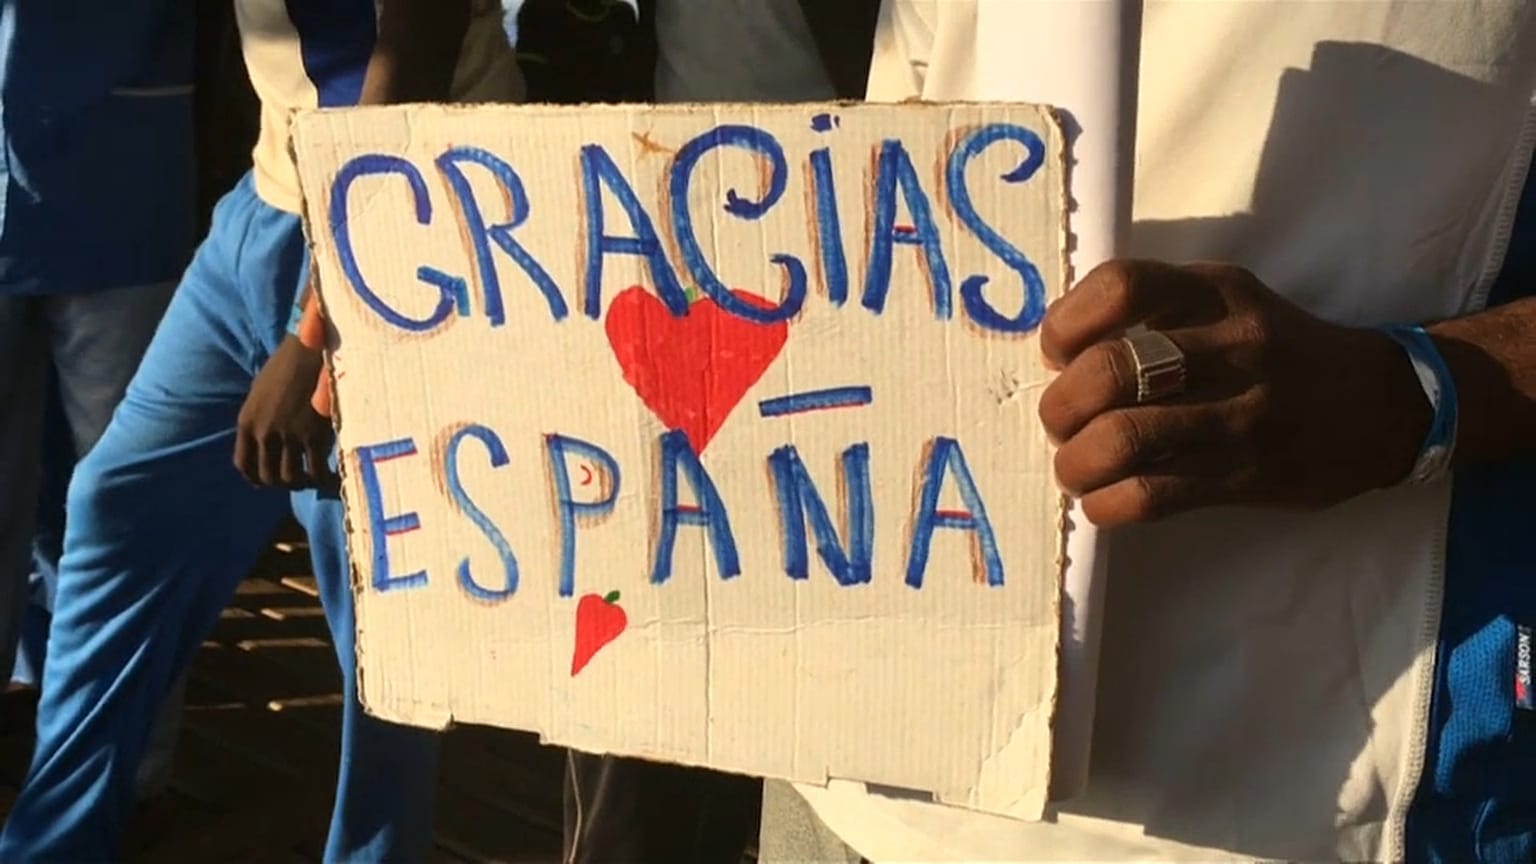 GRACiAS
ESPAÑA
SARSON